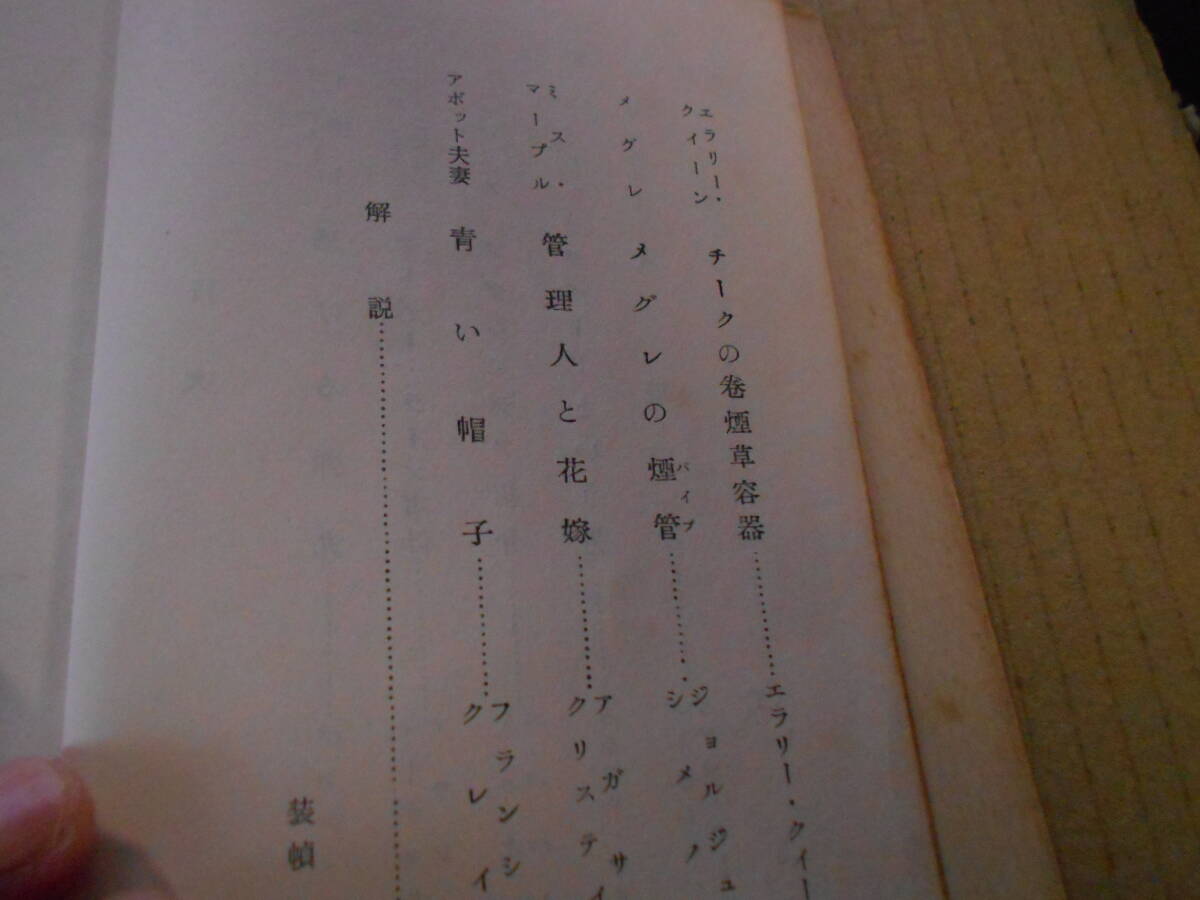 エラリー・
クイーン
チークの巻煙草容器…………エラリー・クイー
メグレ
メグレの煙管…………ジョルジュ
パイプ
シメノ
ミス・
マープル
管理人と花嫁…………アガサ
クリスティ
アボット夫妻
青い帽子…………フランシ
クレイ
解説…………
装幀